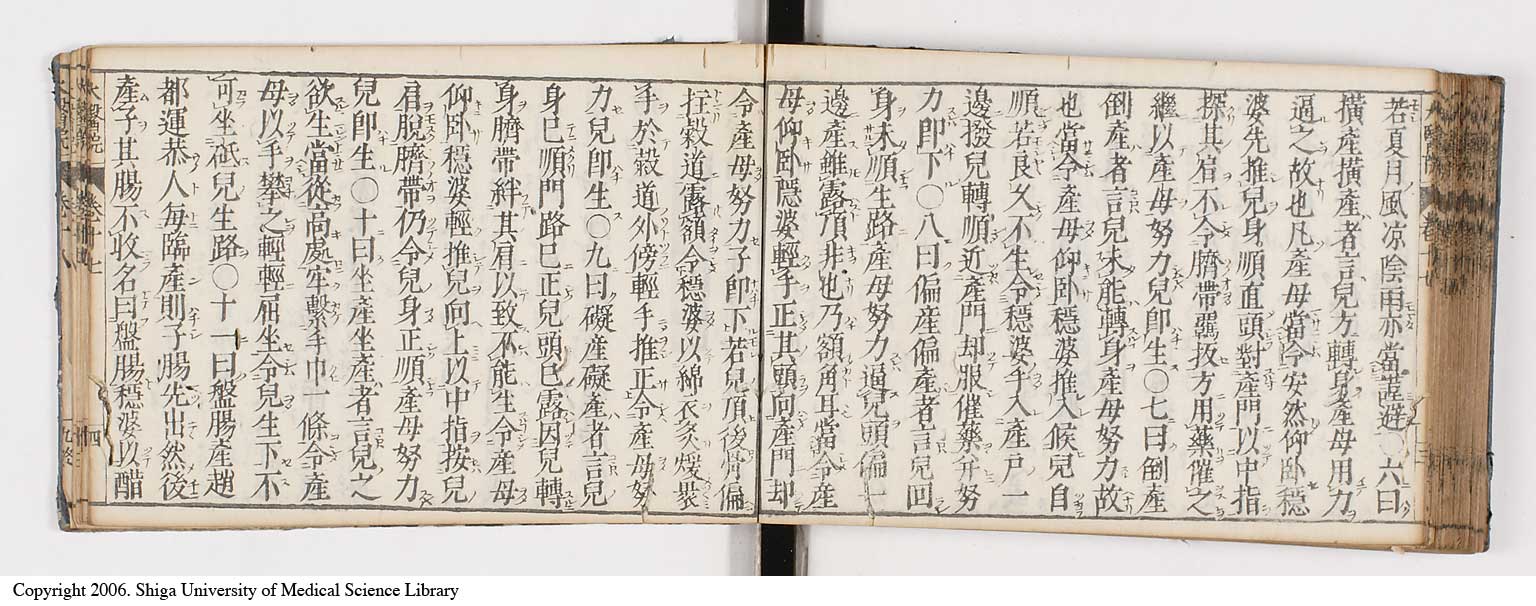 若夏月風凉陰雨亦當謹避○六曰
横產横產者言兒方轉身產母用力
逼之故也凡產母當令安然仰卧穩
婆先推兒身順直頭對產門以中指
探其肩不令臍帶羈扳方用藥催之
繼以產母努力兒卽生○七曰倒產
倒產者言兒未能轉身產母努力故
也當令產母仰卧穩婆推入候兒自
順若良久不生令穩婆手入產戸一
邊撥兒轉順近產門却服催藥并努
力卽下○八曰偏產偏產者言兒回
身未順生路產母努力逼兒頭偏一
邊產雖露頂非也乃額角耳當令產
母仰卧隱婆輕手正其頭向產門却
令產母努力子卽下若兒頂後骨偏
拄穀道露額令穩婆以綿衣炙煖褁
手於穀道外傍輕手推正令產母努
力兒卽生○九曰礙產礙產者言兒
身已順門路已正兒頭已露因兒轉
身臍帶絆其肩以致不能生令產母
仰卧穩婆輕推兒向上以中指按兒
肩脫臍帶仍令兒身正順產母努力
兒卽生○十曰坐產坐產者言兒之
欲生當從高處牢繫手巾一條令產
母以手攀之輕輕屈坐令兒生下不
可坐砥兒生路○十一曰盤腸產趙
都運恭人每臨產則子腸先出然後
產子其腸不收名曰盤腸穩婆以醋
Copyright 2006. Shiga University of Medical Science Library